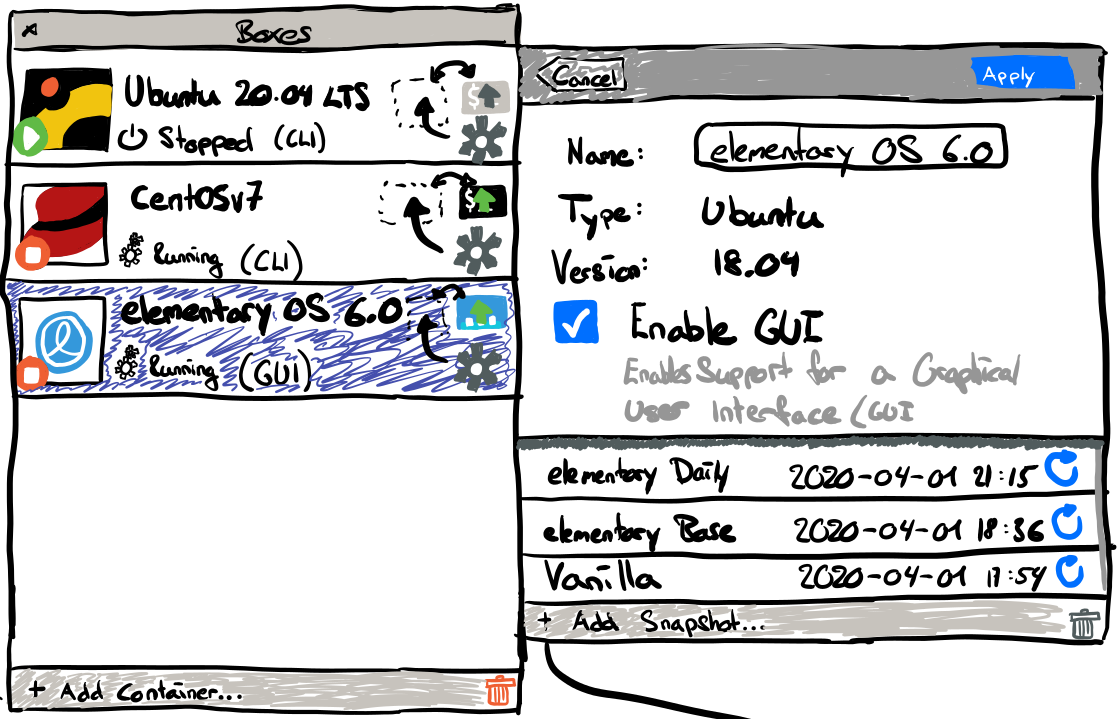 x Boxes
Ubuntu 20.04 LTS
Stopped (CLI)
CentOSv7
Running (CLI)
elementary OS 6.0
Running (GUI)
+ Add Container...
Cancel
Apply
Name: elementary OS 6.0
Type: Ubuntu
Version: 18.04
Enable GUI
Enables Support for a Graphical
User Interface (GUI
elementary Daily 2020-04-01 21:15
elementary Base 2020-04-01 18:36
Vanilla 2020-04-01 17:54
+ Add Snapshot...